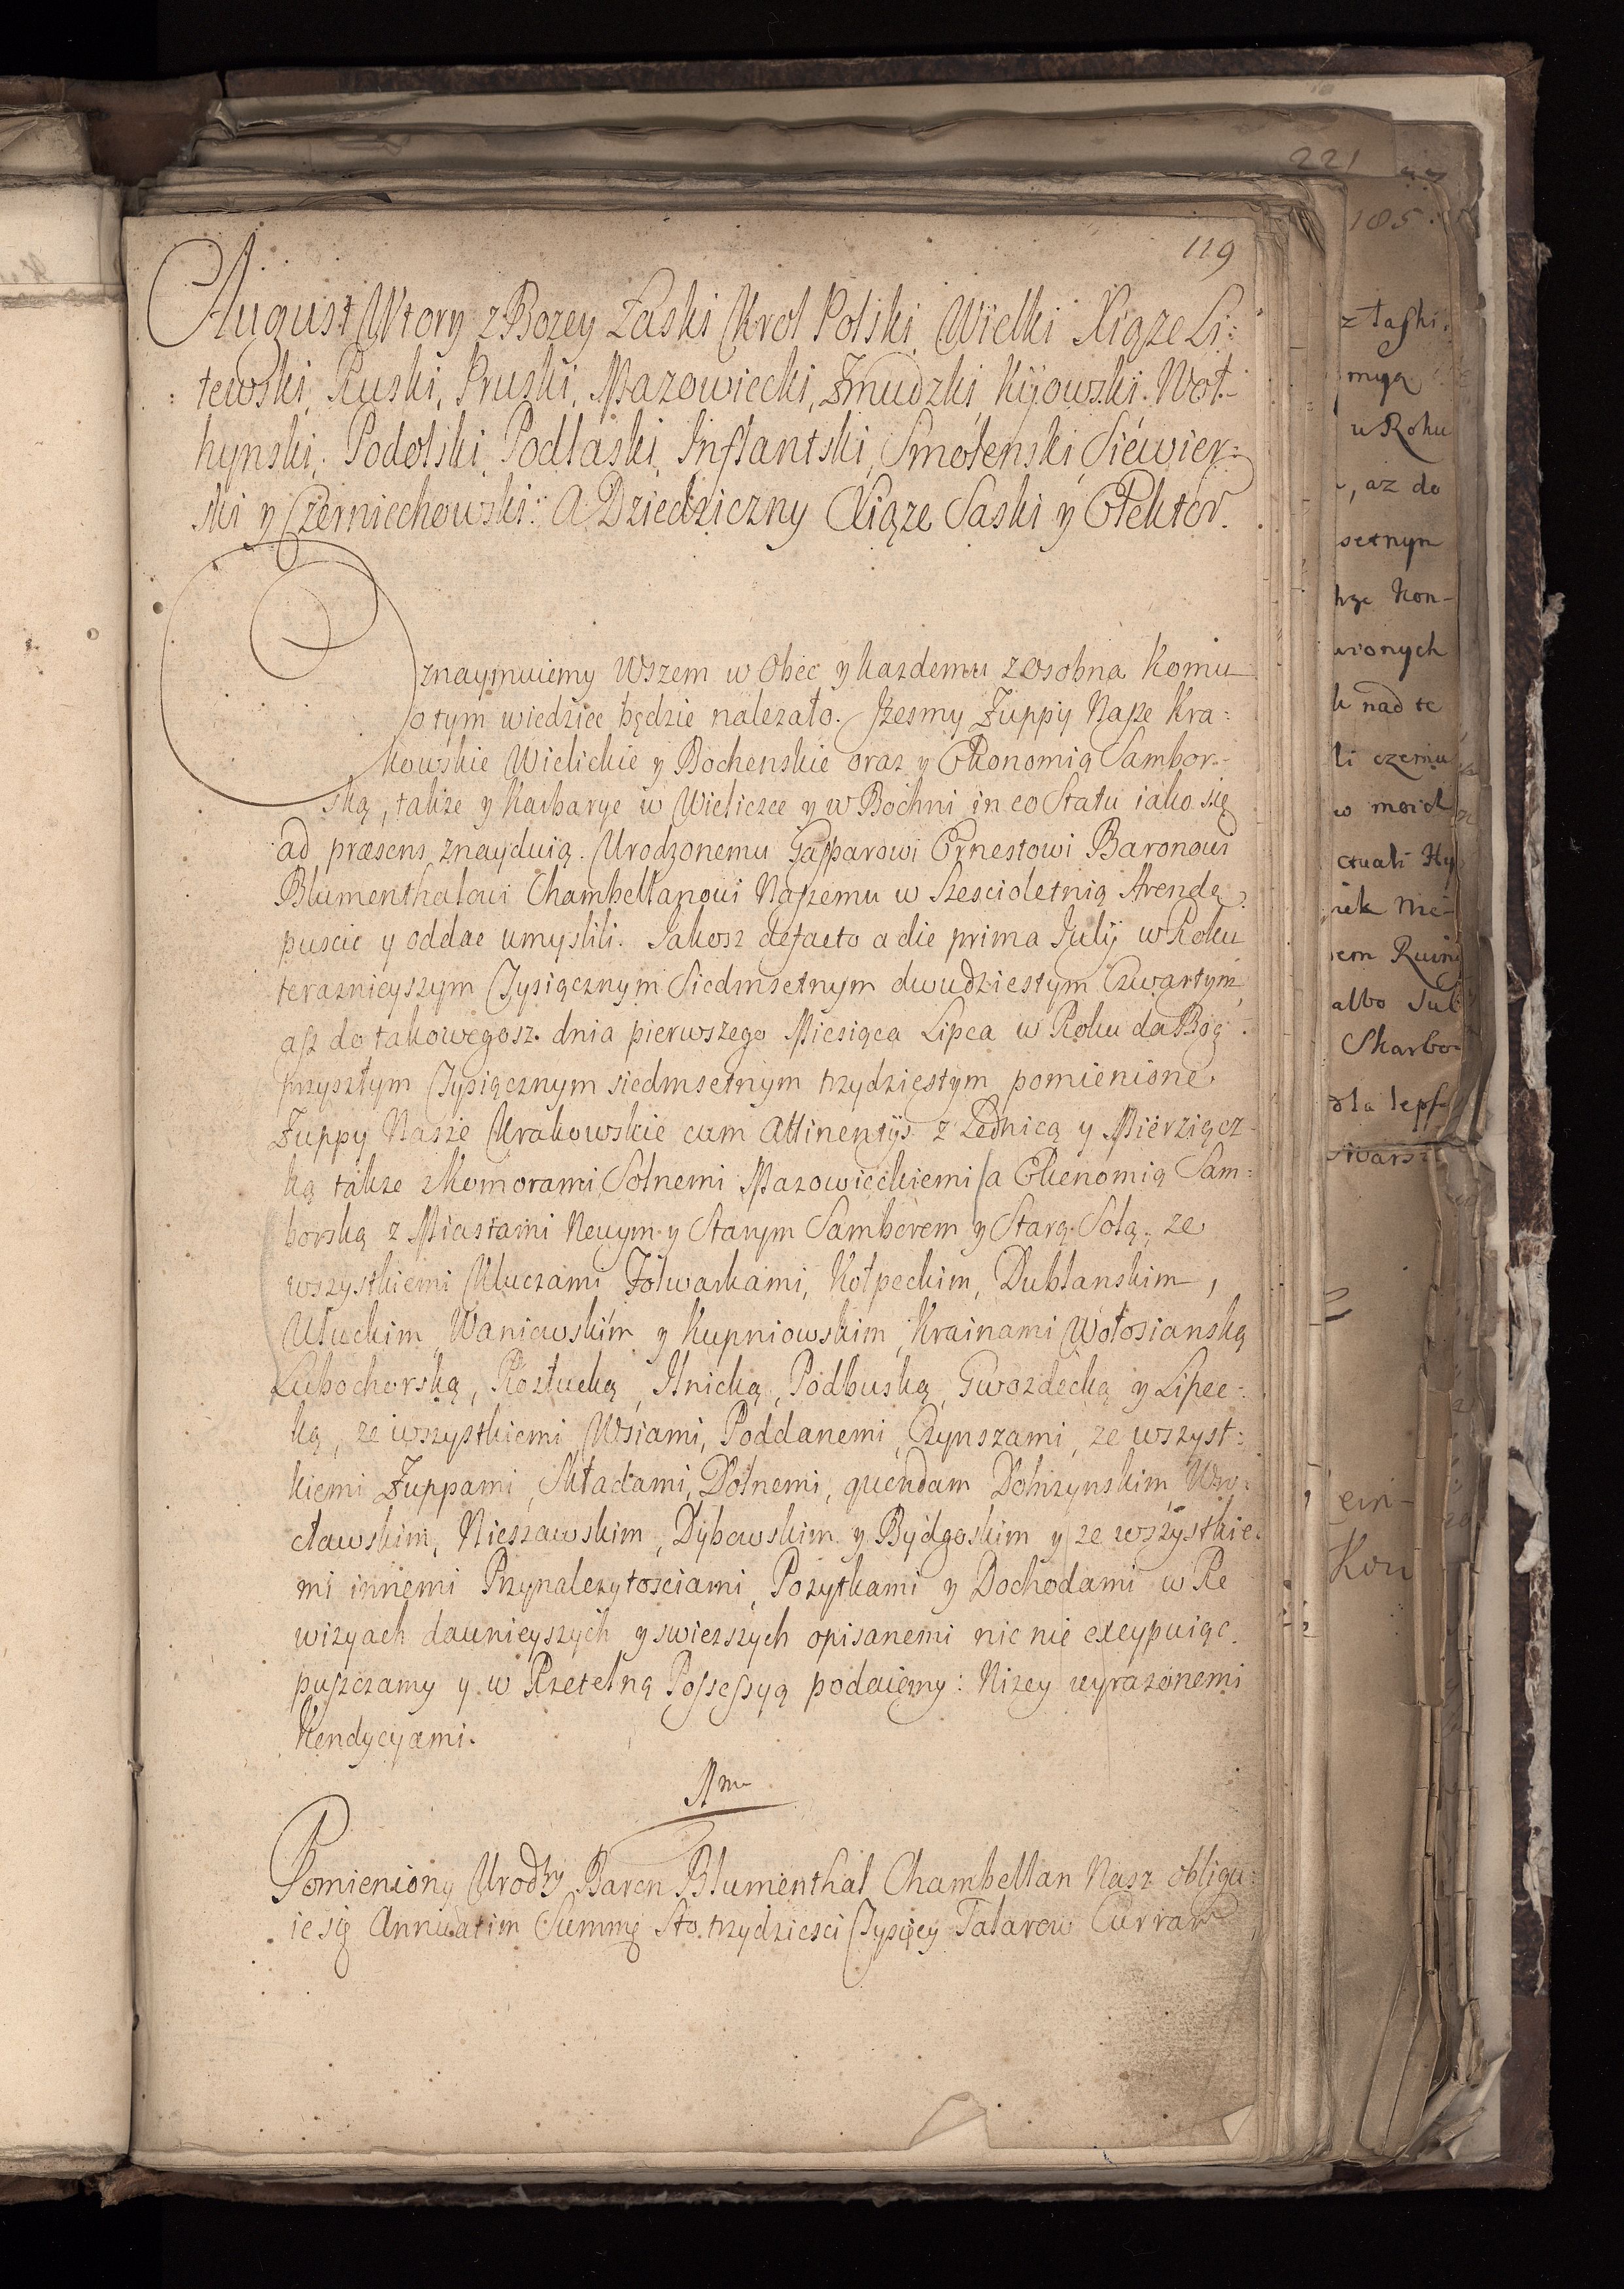 221
185
119
August Wtory z Bozey Łaski Krol Polski Wielki Xiąze Li:
tewski, Ruski, Pruski, Mazowiecki, Zmudzki Kijowski. Woł-
hynski, Podolski, Podlaski, Inflantski, Smolenski Siewier:
ski y Czerniechowski. A Dziedziczny Xiąze Saski y Elektor.
Oznaymuiemy Wszem w Obec y kazdemu z osobna Komu
o tym wiedziec będzie nalezało. Jżesmy Zuppy Nasze Kra:
kowskie Wielickie y Bochenskie oraz y Ekonomią Sambor-
ską, takze y Karbarye w Wieliczce y w Bochni in eo Statu iako się
ad præsens znayduią. Urodzonemu Gasparowi Ernestowi Baronowi
Blumenthalowi Chambellanowi Naszemu w Szescioletnią Arendę
puscic y oddac umyslili. Jakosz de facto a die prima Julij w Roku
teraznieyszym Tysiącznym Siedmsetnym dwudziestym Czwartym
asz do takowegosz dnia pierwszego Miesiąca Lipca w Roku da Bog
przyszłym Tysiącznym siedmsetnym trzydziestym pomienione
Zuppy Nasze Krakowskie cum Attinentijs z Lednicą y Mierziącz-
ką takze z Komorami Solnemi Mazowieckiemi / a Ekonomią Sam:
borską z Miastami Nowym y Starym Samborem y Starą Solą, ze
wszystkiemi Kluczami Folwarkami, Kołpeckim, Dublanskim,
Ułuckim Waniowskim y Kupniowskim, Krainami Wołosianską
Lubochorską, Rozłucką, Ilnicką, Podbuską, Gwozdecką y Lipec-
ką, ze wszystkiemi Wsiami, Poddanemi, Czynszami, ze wszyst:
kiemi Zuppami, Składami, Dolnemi, quendam Dobrzynskim, Wro:
cławskim, Nieszawskim, Dybowskim y Bydgoskim y ze wszystkie
mi innemi Przynalezytosciami, Pozytkami y Dochodami w Re
wizyach dawnieyszych y swiezszych opisanemi nic nie excypuiąc
puszczamy y w Rzetelną Possessyą podaiemy: Nizey wyrazonemi
Kondycyami.
1mo
Pomieniony Urodzy Baron Blumenthal Chambellan Nasz obligu:
ie się Annuatim Summę Sto trzydziesci Tysięcy Talarow Currant
z łaski
myą
w Roku
, az do
setnym
Kon-
wionych
k nad te
li czemu
w moich
ctuali Hy
nie-
em Ruin
albo Sul
Skarbo
dla leps
ein-
Kon